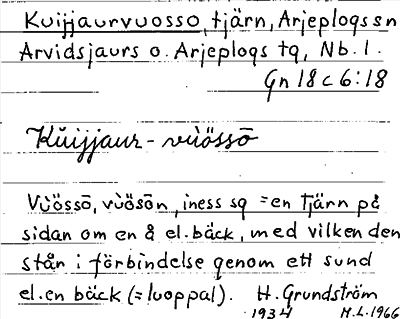 Kuijjaurvuosso, tjärn, Arjeplogs sn
Arvidsjaurs o. Arjeplogs tg, Nb. l.
Gn 18 c 6:18
Kŭijjaur-vùössō
Vùössō, vùösōn, iness sg = en tjärn på
sidan om en å el. bäck, med vilken den
står i förbindelse genom ett sund
el. en bäck (= luoppal). H. Grundström
1934 H.L. 1966